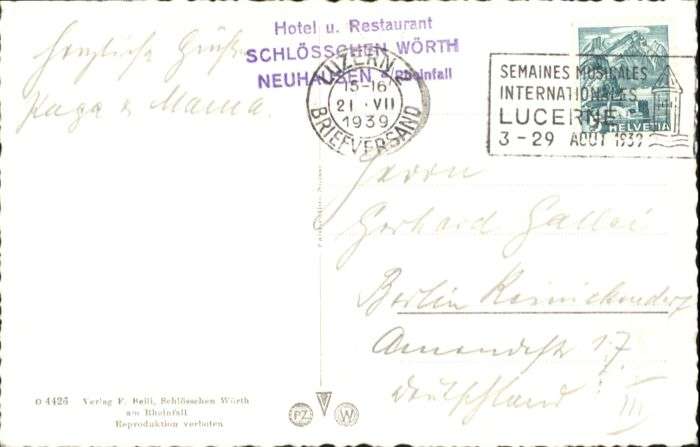 Herzliche Grüße
Papa & Mama.
Hotel u. Restaurant
SCHLÖSSCHEN WÖRTH
NEUHAUSEN a/Rheinfall
LUZERN 2
15-16
21 · VII
1939
BRIEFVERSAND
SEMAINES MUSICALES
INTERNATIONALES
LUCERNE
3 - 29 AOUT 1939
HELVETIA
Herrn
Gerhard
Berlin Reinickendorf
Amendestr 17
Deutschland III
O 4426 Verlag F. Beili, Schlösschen Wörth
am Rheinfall
Reproduktion verboten
PZ
W